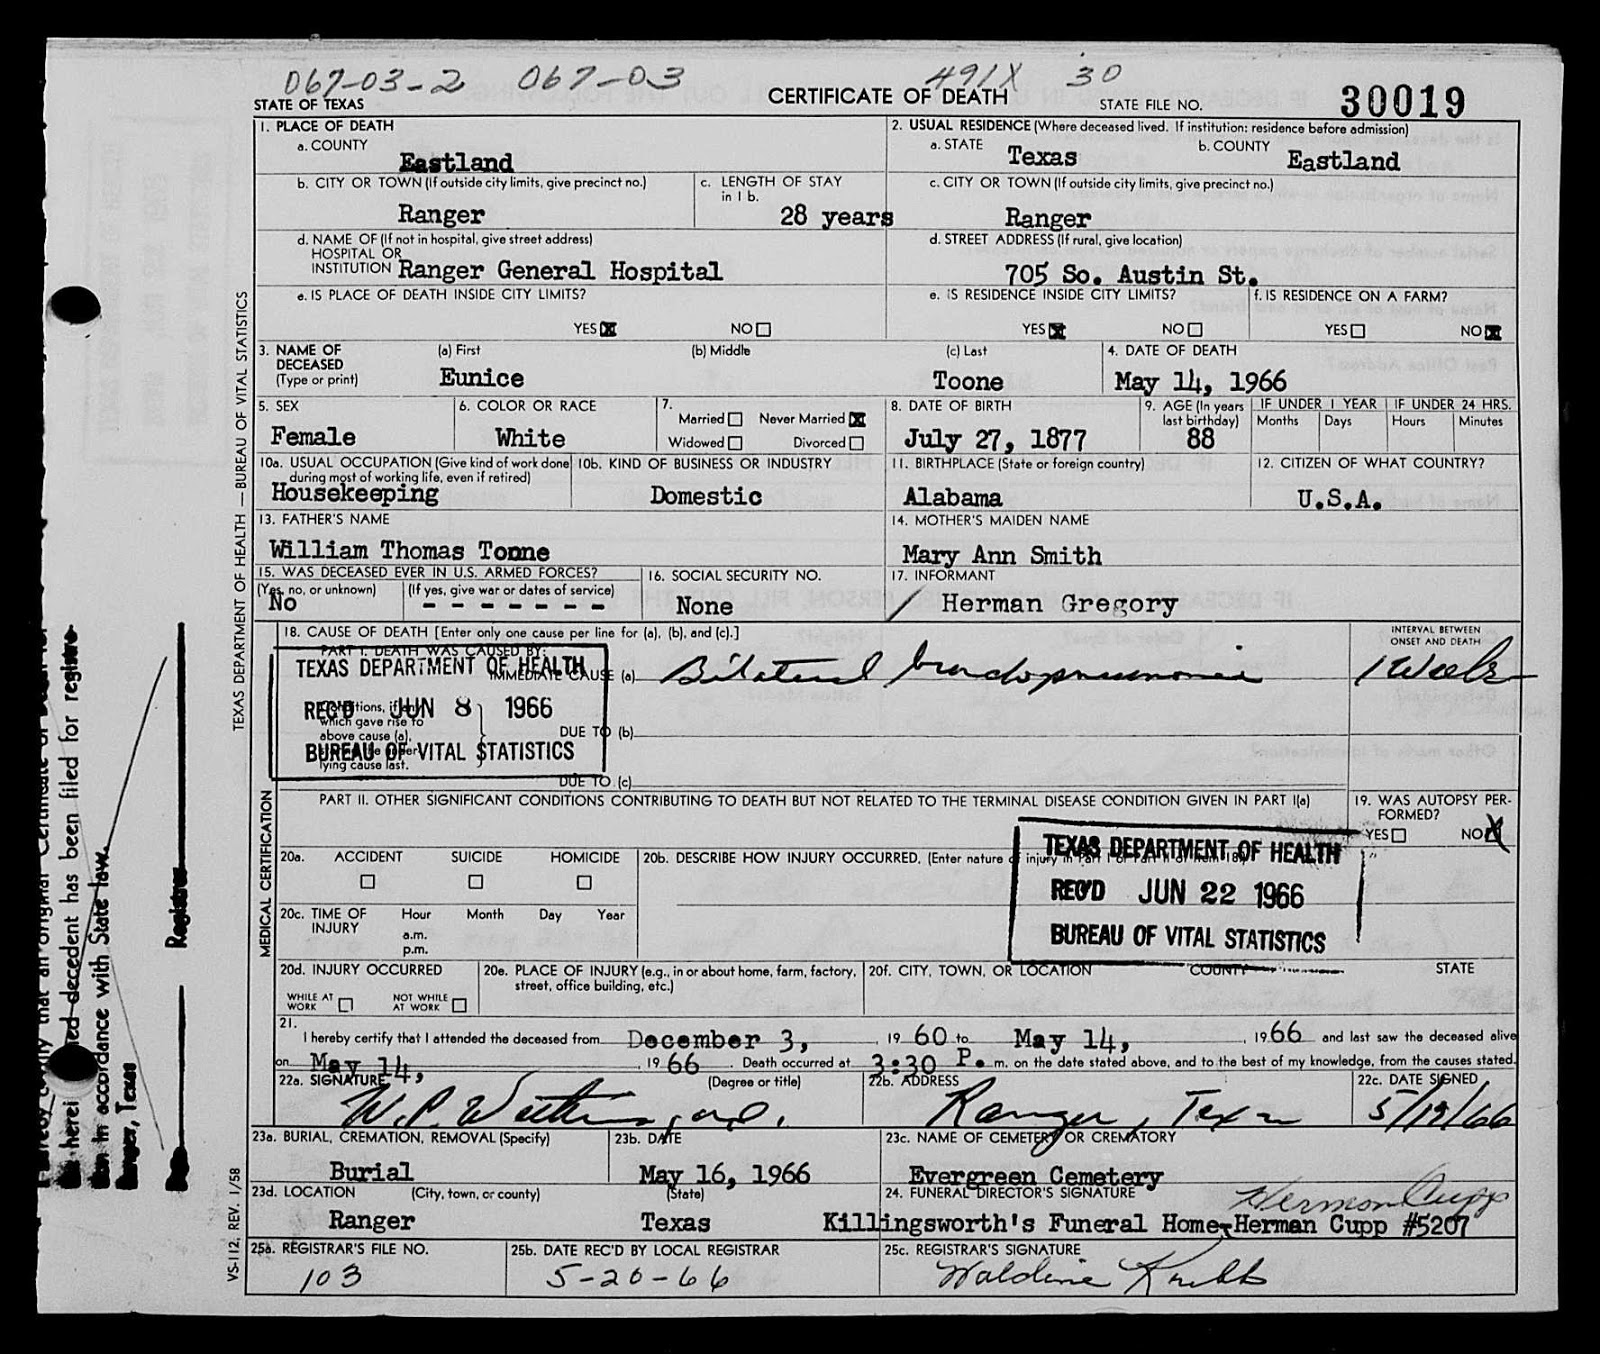 067-03-2 067-03 491X 30
STATE OF TEXAS CERTIFICATE OF DEATH STATE FILE NO. 30019
1. PLACE OF DEATH
a. COUNTY
Eastland
2. USUAL RESIDENCE (Where deceased lived. If institution: residence before admission)
a. STATE Texas b. COUNTY Eastland
b. CITY OR TOWN (If outside city limits, give precinct no.)
Ranger
c. LENGTH OF STAY in 1 b.
28 years
c. CITY OR TOWN (If outside city limits, give precinct no.)
Ranger
d. NAME OF (If not in hospital, give street address)
HOSPITAL OR
INSTITUTION Ranger General Hospital
d. STREET ADDRESS (If rural, give location)
705 So. Austin St.
e. IS PLACE OF DEATH INSIDE CITY LIMITS?
YES X NO
e. IS RESIDENCE INSIDE CITY LIMITS?
YES X NO
f. IS RESIDENCE ON A FARM?
YES NO X
3. NAME OF DECEASED (Type or print)
(a) First (b) Middle (c) Last
Eunice Toone
4. DATE OF DEATH
May 14, 1966
5. SEX
Female
6. COLOR OR RACE
White
7. Married Never Married X
Widowed Divorced
8. DATE OF BIRTH
July 27, 1877
9. AGE (In years last birthday)
88
IF UNDER 1 YEAR IF UNDER 24 HRS.
Months Days Hours Minutes
10a. USUAL OCCUPATION (Give kind of work done during most of working life, even if retired)
Housekeeping
10b. KIND OF BUSINESS OR INDUSTRY
Domestic
11. BIRTHPLACE (State or foreign country)
Alabama
12. CITIZEN OF WHAT COUNTRY?
U.S.A.
13. FATHER'S NAME
William Thomas Tonne
14. MOTHER'S MAIDEN NAME
Mary Ann Smith
15. WAS DECEASED EVER IN U.S. ARMED FORCES?
(Yes, no, or unknown) (If yes, give war or dates of service)
No - - - - - - -
16. SOCIAL SECURITY NO.
None
17. INFORMANT
/ Herman Gregory
18. CAUSE OF DEATH [Enter only one cause per line for (a), (b), and (c).]
PART I. DEATH WAS CAUSED BY:
IMMEDIATE CAUSE (a) Bilateral bronchopneumonia
INTERVAL BETWEEN ONSET AND DEATH
1 Week
Conditions, if any, which gave rise to above cause (a), stating the under-lying cause last.
DUE TO (b)
DUE TO (c)
TEXAS DEPARTMENT OF HEALTH
REC'D JUN 8 1966
BUREAU OF VITAL STATISTICS
PART II. OTHER SIGNIFICANT CONDITIONS CONTRIBUTING TO DEATH BUT NOT RELATED TO THE TERMINAL DISEASE CONDITION GIVEN IN PART I(a)
19. WAS AUTOPSY PER-FORMED?
YES NO X
20a. ACCIDENT SUICIDE HOMICIDE
20b. DESCRIBE HOW INJURY OCCURRED. (Enter nature of injury in Part I or Part II of item 18.)
TEXAS DEPARTMENT OF HEALTH
REC'D JUN 22 1966
BUREAU OF VITAL STATISTICS
20c. TIME OF INJURY Hour Month Day Year
a.m.
p.m.
20d. INJURY OCCURRED
WHILE AT WORK NOT WHILE AT WORK
20e. PLACE OF INJURY (e.g., in or about home, farm, factory, street, office building, etc.)
20f. CITY, TOWN, OR LOCATION COUNTY STATE
21.
I hereby certify that I attended the deceased from December 3, 1960 to May 14, 1966 and last saw the deceased alive
on May 14, 1966. Death occurred at 3:30 P. m. on the date stated above, and to the best of my knowledge, from the causes stated.
22a. SIGNATURE (Degree or title)
W.P. Watkins, M.D.
22b. ADDRESS
Ranger, Texas
22c. DATE SIGNED
5/19/66
23a. BURIAL, CREMATION, REMOVAL (Specify)
Burial
23b. DATE
May 16, 1966
23c. NAME OF CEMETERY OR CREMATORY
Evergreen Cemetery
23d. LOCATION (City, town, or county) (State)
Ranger Texas
24. FUNERAL DIRECTOR'S SIGNATURE
Herman Cupp
Killingsworth's Funeral Home-Herman Cupp #5207
25a. REGISTRAR'S FILE NO.
103
25b. DATE REC'D BY LOCAL REGISTRAR
5-20-66
25c. REGISTRAR'S SIGNATURE
Waldine Knubb
TEXAS DEPARTMENT OF HEALTH — BUREAU OF VITAL STATISTICS
MEDICAL CERTIFICATION
VS-112, REV. 1/58
that an original Certificate of
decedent has been filed for
in accordance with State law.
Ranger, Texas
Registrar